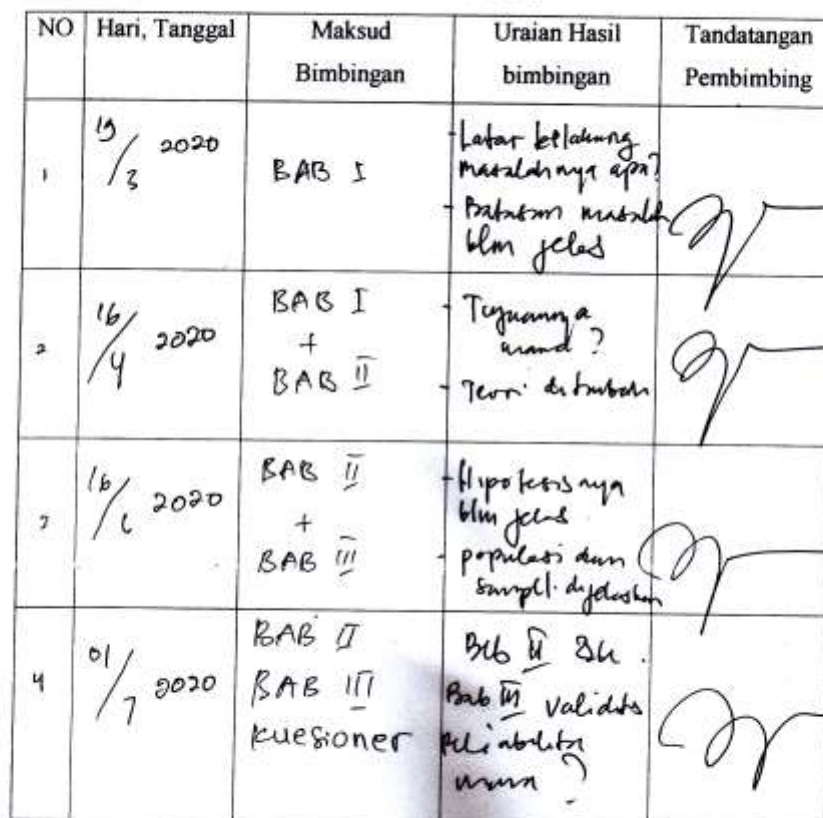 NO Hari, Tanggal Maksud Bimbingan Uraian Hasil bimbingan Tandatangan Pembimbing
1 19/3 2020 BAB I
- Latar belakang
masalahnya apa?
- Batasan masalah
blm jelas
2 16/4 2020 BAB I
+
BAB II
- Tujuannya
mana?
- Teori ditambah
3 16/6 2020 BAB II
+
BAB III
- Hipotesisnya
blm jelas
- populasi dan
sampel dijelaskan
4 01/7 2020 BAB II
BAB III
kuesioner
Bab II
Bab III validitas
reliabilitas
mana?